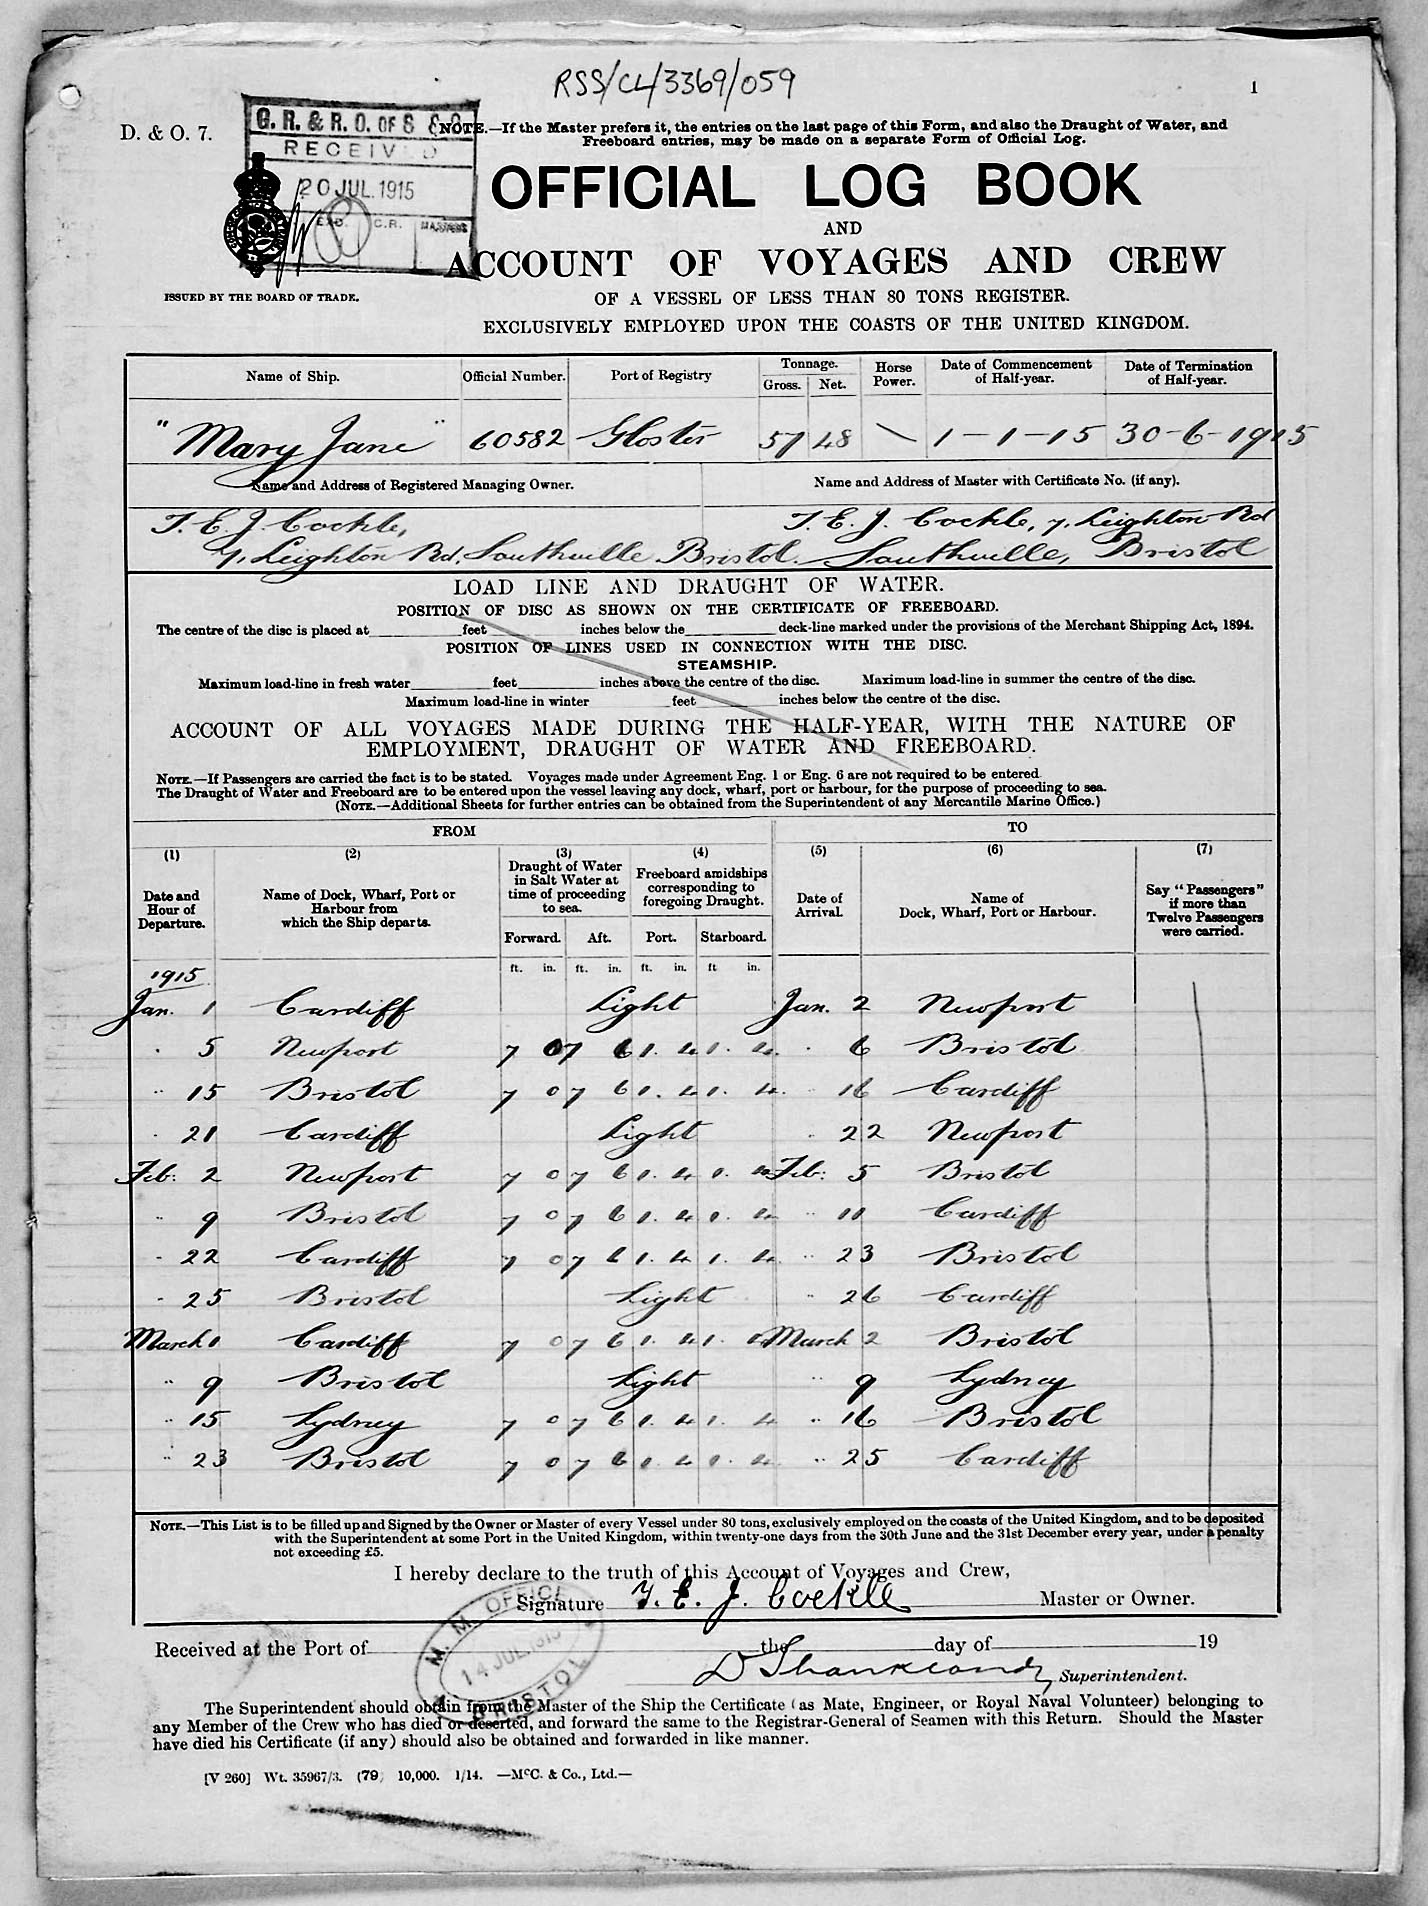 RSS/CL/3369/059
1
D. & O. 7.
G. R. & R. O. OF S & S
RECEIVED
20 JUL. 1915
C.R. MASTERS
NOTE.—If the Master prefers it, the entries on the last page of this Form, and also the Draught of Water, and
Freeboard entries, may be made on a separate Form of Official Log.
OFFICIAL LOG BOOK
AND
ACCOUNT OF VOYAGES AND CREW
ISSUED BY THE BOARD OF TRADE.
OF A VESSEL OF LESS THAN 80 TONS REGISTER.
EXCLUSIVELY EMPLOYED UPON THE COASTS OF THE UNITED KINGDOM.
Name of Ship. Official Number. Port of Registry Tonnage. Gross. Net. Horse Power. Date of Commencement of Half-year. Date of Termination of Half-year.
"Mary Jane" 60582 Gloster 57 48 1-1-15 30-6-1915
Name and Address of Registered Managing Owner. Name and Address of Master with Certificate No. (if any).
T. E. J. Cockle, T. E. J. Cockle, 7, Leighton Rd
7, Leighton Rd, Southville Bristol. Southville, Bristol
LOAD LINE AND DRAUGHT OF WATER.
POSITION OF DISC AS SHOWN ON THE CERTIFICATE OF FREEBOARD.
The centre of the disc is placed at feet inches below the deck-line marked under the provisions of the Merchant Shipping Act, 1894.
POSITION OF LINES USED IN CONNECTION WITH THE DISC.
STEAMSHIP.
Maximum load-line in fresh water feet inches above the centre of the disc. Maximum load-line in summer the centre of the disc.
Maximum load-line in winter feet inches below the centre of the disc.
ACCOUNT OF ALL VOYAGES MADE DURING THE HALF-YEAR, WITH THE NATURE OF
EMPLOYMENT, DRAUGHT OF WATER AND FREEBOARD.
NOTE.—If Passengers are carried the fact is to be stated. Voyages made under Agreement Eng. 1 or Eng. 6 are not required to be entered
The Draught of Water and Freeboard are to be entered upon the vessel leaving any dock, wharf, port or harbour, for the purpose of proceeding to sea.
(NOTE.—Additional Sheets for further entries can be obtained from the Superintendent of any Mercantile Marine Office.)
FROM TO
(1) (2) (3) (4) (5) (6) (7)
Date and Hour of Departure. Name of Dock, Wharf, Port or Harbour from which the Ship departs. Draught of Water in Salt Water at time of proceeding to sea. Freeboard amidships corresponding to foregoing Draught. Date of Arrival. Name of Dock, Wharf, Port or Harbour. Say "Passengers" if more than Twelve Passengers were carried.
Forward. Aft. Port. Starboard.
ft. in. ft. in. ft. in. ft in.
1915
Jan. 1 Cardiff Light Jan. 2 Newport
" 5 Newport 7 0 7 6 1. 4 1. 4 " 6 Bristol
" 15 Bristol 7 0 7 6 1. 4 1. 4 " 16 Cardiff
" 21 Cardiff Light " 22 Newport
Feb: 2 Newport 7 0 7 6 1. 4 1. 4 Feb: 5 Bristol
" 9 Bristol 7 0 7 6 1. 4 1. 4 " 11 Cardiff
" 22 Cardiff 7 0 7 6 1. 4 1. 4 " 23 Bristol
" 25 Bristol Light " 26 Cardiff
March 1 Cardiff 7 0 7 6 1. 4 1. 4 March 2 Bristol
" 9 Bristol Light " 9 Lydney
" 15 Lydney 7 0 7 6 1. 4 1. 4 " 16 Bristol
" 23 Bristol 7 0 7 6 1. 4 1. 4 " 25 Cardiff
NOTE.—This List is to be filled up and Signed by the Owner or Master of every Vessel under 80 tons, exclusively employed on the coasts of the United Kingdom, and to be deposited
with the Superintendent at some Port in the United Kingdom, within twenty-one days from the 30th June and the 31st December every year, under a penalty
not exceeding £5.
I hereby declare to the truth of this Account of Voyages and Crew,
Signature T. E. J. Cockle Master or Owner.
M. M. OFFICE
14 JUL 1915
BRISTOL
Received at the Port of the day of 19
Superintendent.
The Superintendent should obtain from the Master of the Ship the Certificate (as Mate, Engineer, or Royal Naval Volunteer) belonging to
any Member of the Crew who has died or deserted, and forward the same to the Registrar-General of Seamen with this Return. Should the Master
have died his Certificate (if any) should also be obtained and forwarded in like manner.
[V 260] Wt. 35967/3. (79) 10,000. 1/14. —McC. & Co., Ltd.—